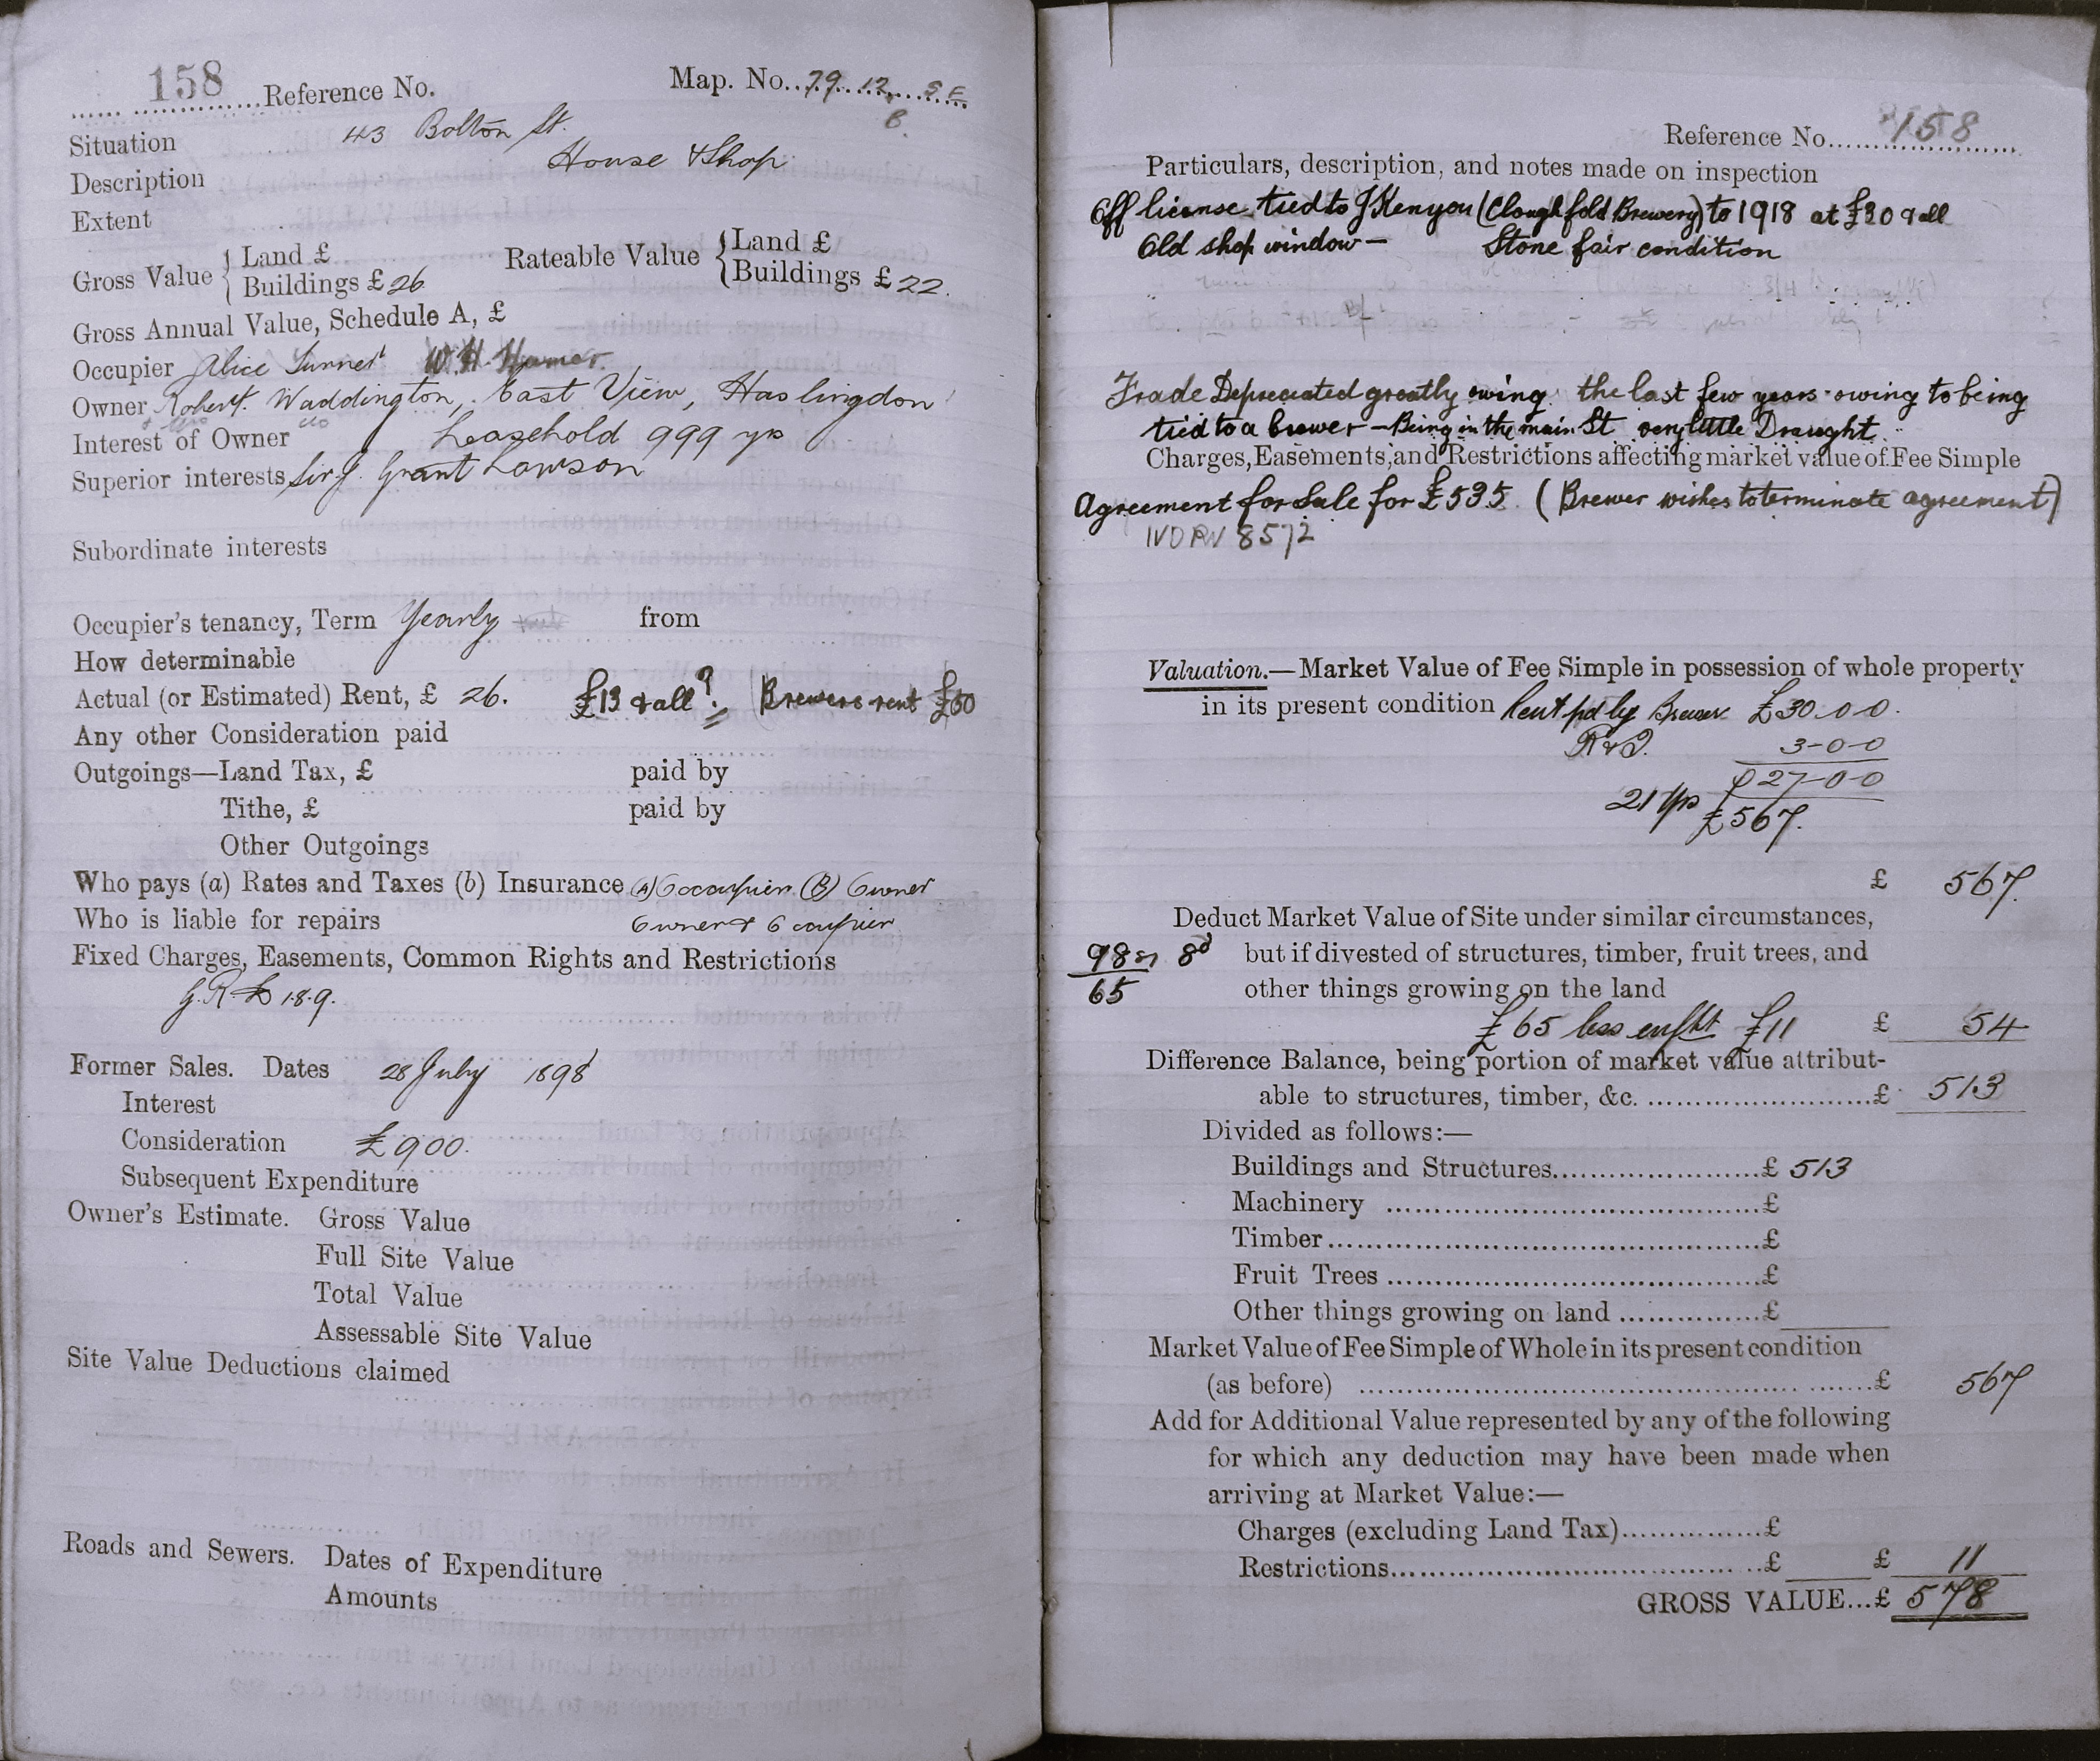 158 Reference No. Map. No. 79.12. S E
B.
Situation 43 Bolton St.
Description House & Shop
Extent
Gross Value { Land £ Rateable Value { Land £
Buildings £ 26 Buildings £ 22.
Gross Annual Value, Schedule A, £
Occupier Alice Turner W. H. Hamer.
Owner Robert Waddington, East View, Haslingdon
Interest of Owner Leasehold 999 yrs
Superior interests Sir J. Grant Lawson
Subordinate interests
Occupier's tenancy, Term Yearly from
How determinable
Actual (or Estimated) Rent, £ 26. £13 & all? Brewers rent £30
Any other Consideration paid
Outgoings—Land Tax, £ paid by
Tithe, £ paid by
Other Outgoings
Who pays (a) Rates and Taxes (b) Insurance (A) Occupier (B) Owner
Who is liable for repairs Owner & Occupier
Fixed Charges, Easements, Common Rights and Restrictions
G.R. £ 1.8.9.
Former Sales. Dates 28 July 1898
Interest
Consideration £900.
Subsequent Expenditure
Owner's Estimate. Gross Value
Full Site Value
Total Value
Assessable Site Value
Site Value Deductions claimed
Roads and Sewers. Dates of Expenditure
Amounts
Reference No. 158
Particulars, description, and notes made on inspection
Off license tied to J Kenyon (Cloughfold Brewery) to 1918 at £30 & all
Old shop window — Stone fair condition
Trade Depreciated greatly owing the last few years owing to being
tied to a brewer — Being in the main St very little Draught.
Charges, Easements, and Restrictions affecting market value of Fee Simple
Agreement for Sale for £535. (Brewer wishes to terminate agreement)
8572
Valuation.—Market Value of Fee Simple in possession of whole property
in its present condition Rent pd by Brewer £30.0.0.
R & I. 3-0-0
£27-0-0
21 yrs £567.
£ 567.
Deduct Market Value of Site under similar circumstances,
98 8d but if divested of structures, timber, fruit trees, and
65 other things growing on the land
£65 less enfht £11 £ 54
Difference Balance, being portion of market value attribut-
able to structures, timber, &c. £ 513
Divided as follows:—
Buildings and Structures £ 513
Machinery £
Timber £
Fruit Trees £
Other things growing on land £
Market Value of Fee Simple of Whole in its present condition
(as before) £ 567
Add for Additional Value represented by any of the following
for which any deduction may have been made when
arriving at Market Value:—
Charges (excluding Land Tax) £
Restrictions £ £ 11
GROSS VALUE...£ 578